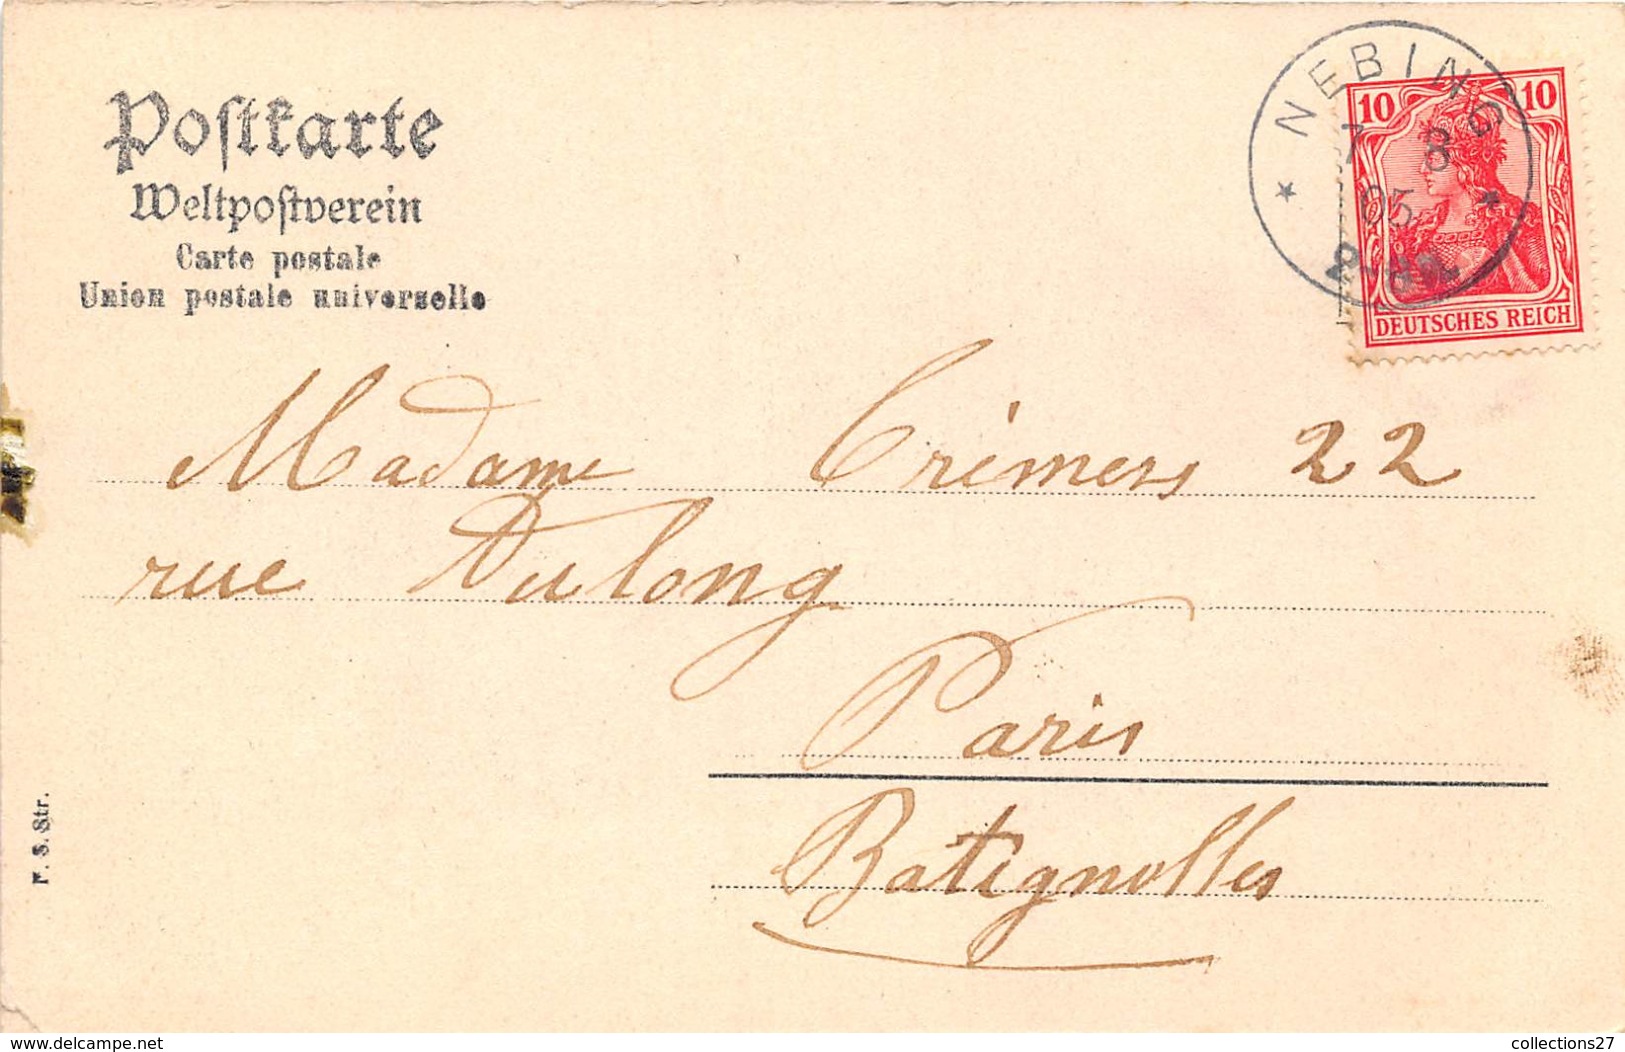 Postkarte
Weltpostverein
Carte postale
Union postale universelle
NEBING
7 8
03
10 10
DEUTSCHES REICH
Madame Crémers 22
rue Dulong
Paris
Batignolles
F. S. Str.
delcampe.net
collections27